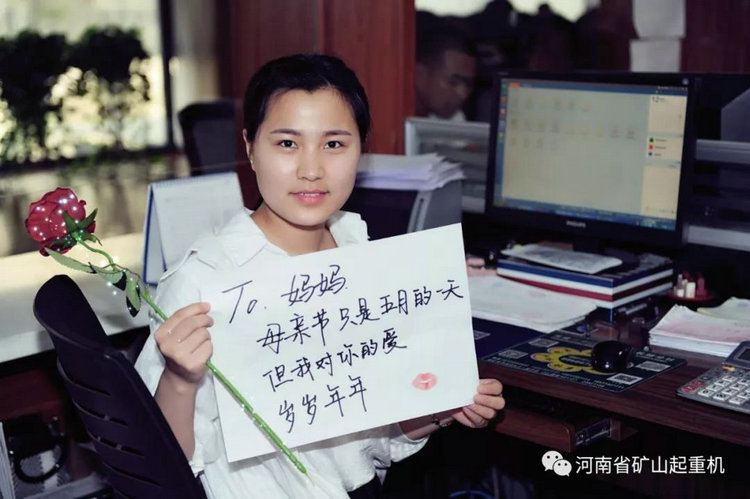 To. 妈妈
母亲节只是五月的一天
但我对你的爱
岁岁年年
PHILIPS
河南省矿山起重机